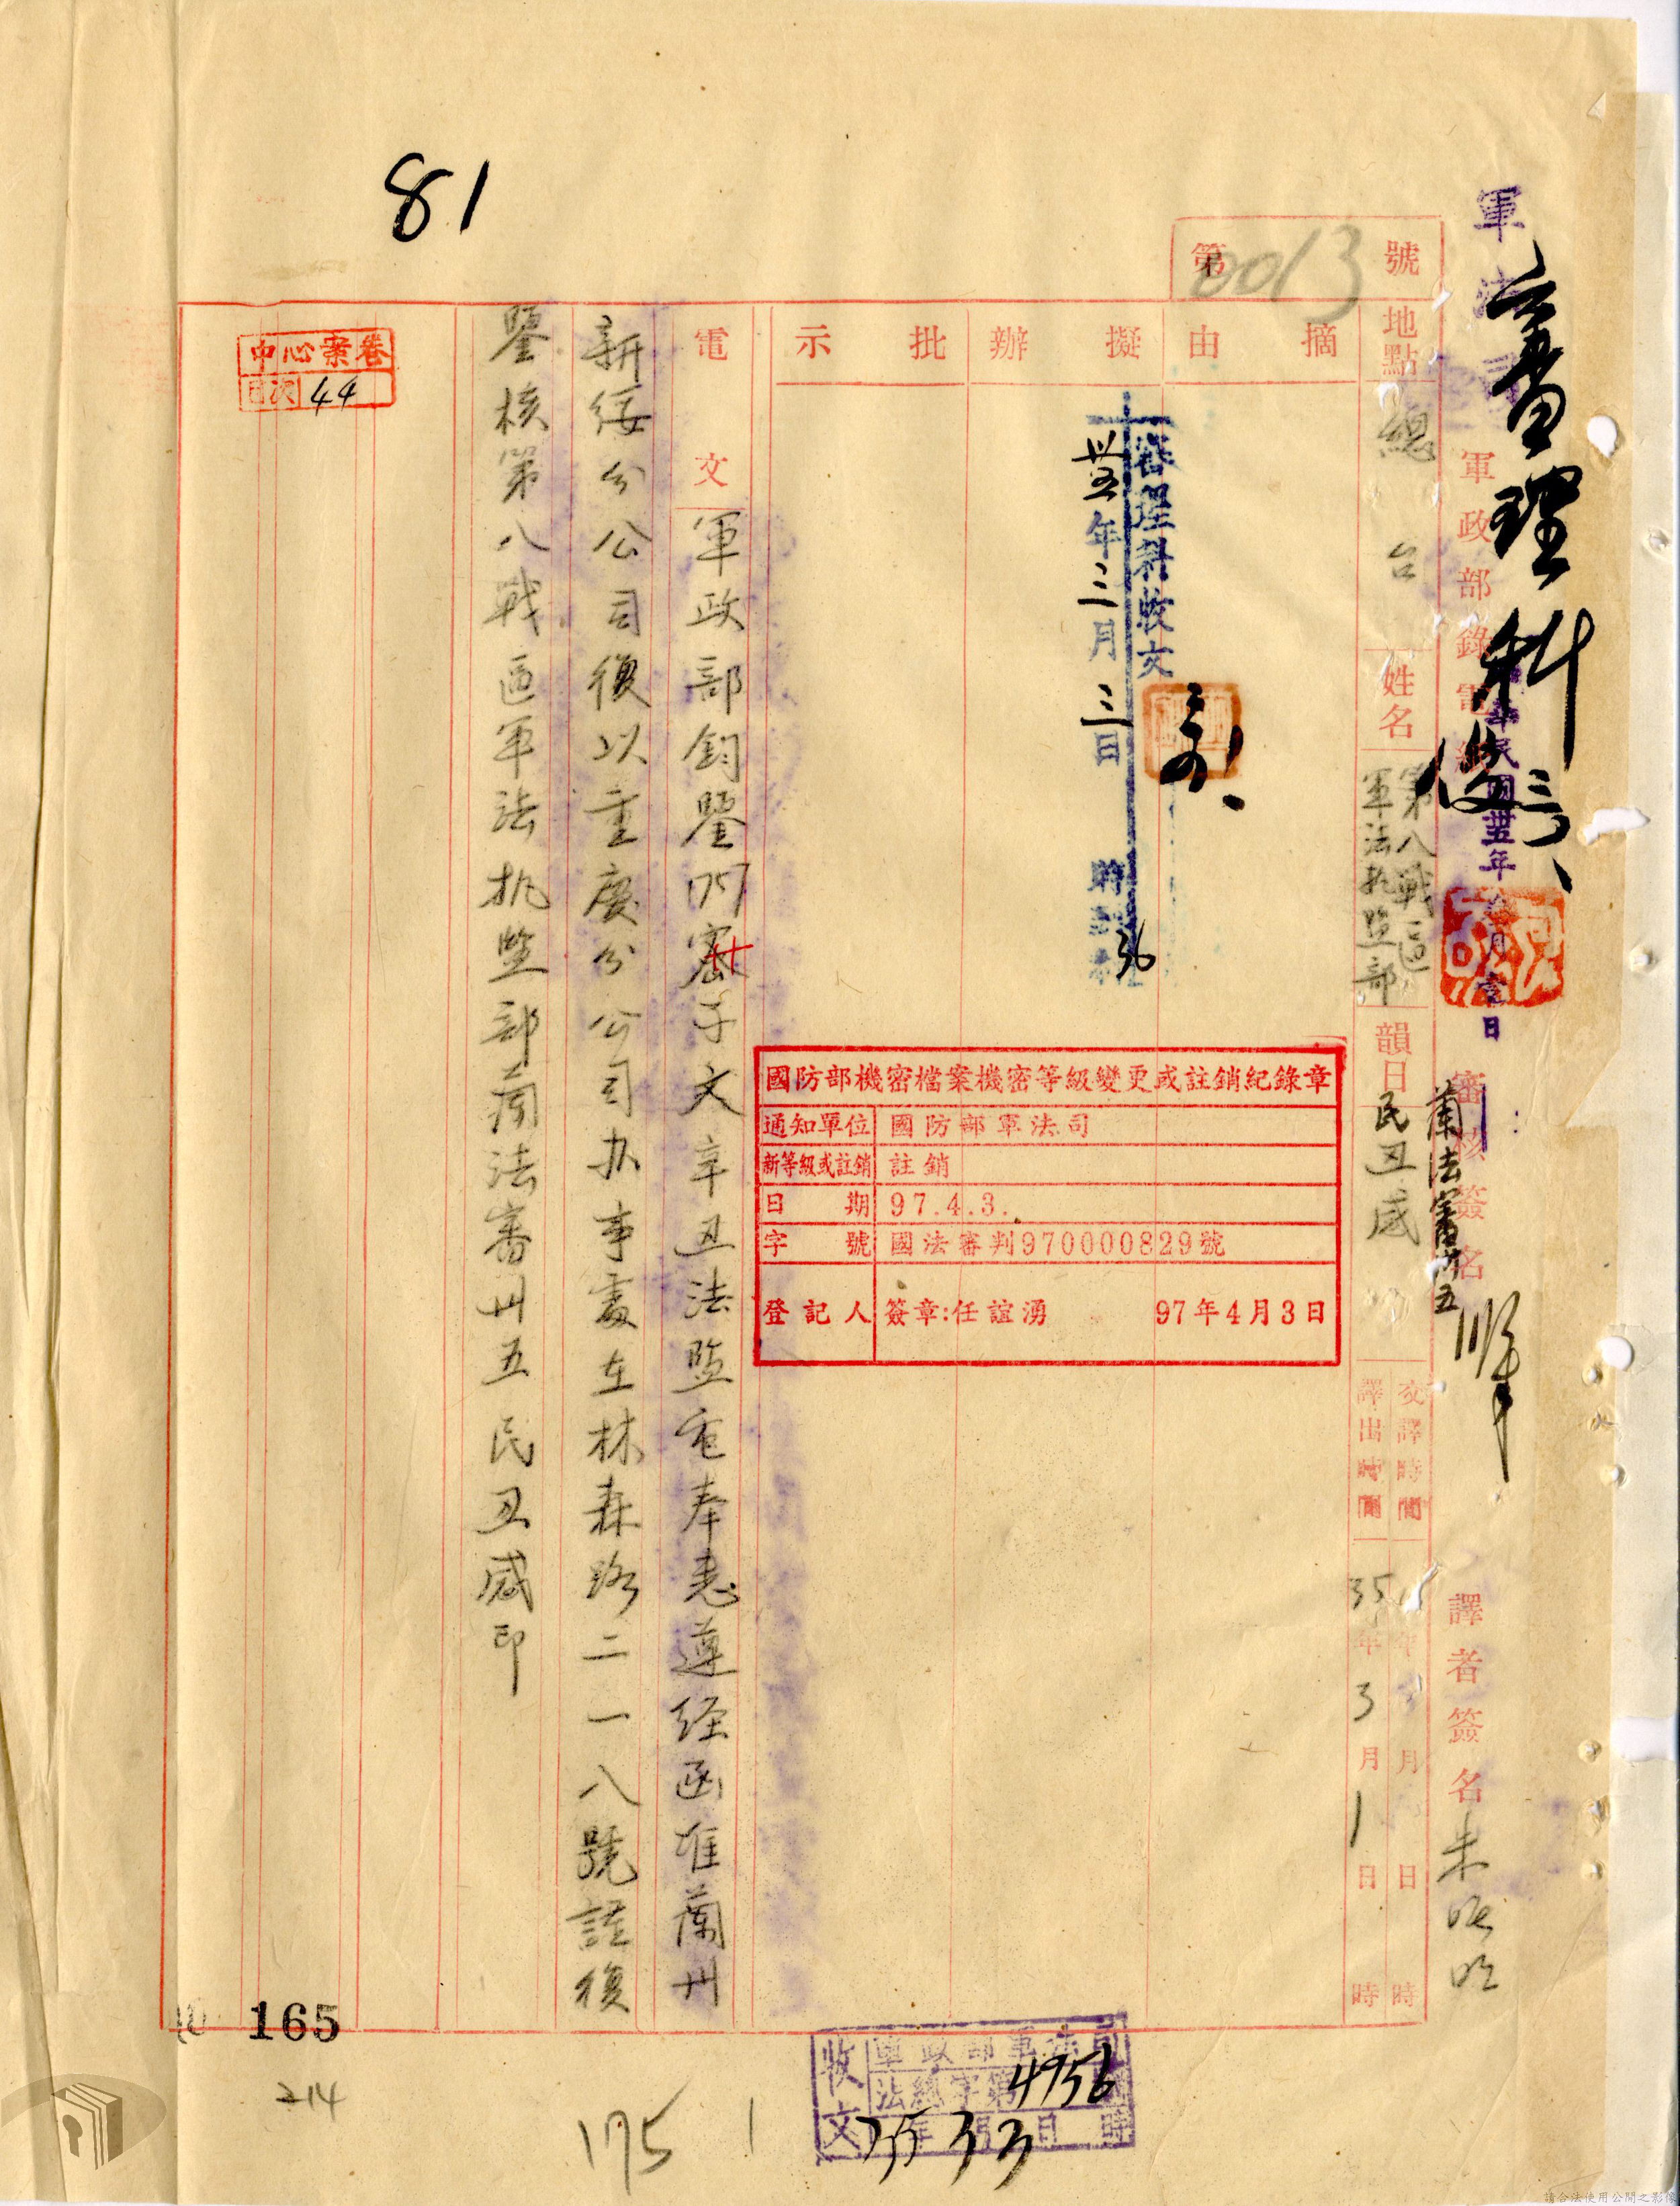 81
第0013號
軍法司
審理科
軍政部錄電紙
審核簽名
譯者簽名
地點 總台
姓名 第八戰區軍法執監部
韻日 民丑感
蘭法審卅五
交譯時間 年 月 日 時
譯出時間 35年3月1日 時
摘由
擬辦
批示
審理科收文
卅五年三月三日 時
國防部機密檔案機密等級變更或註銷紀錄章
通知單位 國防部軍法司
新等級或註銷 註銷
日期 97.4.3.
字號 國法審判970000829號
登記人 簽章:任誼湧 97年4月3日
電文
軍政部鈞鑒 密子文辛丑法監電奉悉遵經函准蘭州
新綏分公司復以重慶分公司办事處在林森路二一八號謹復
鑒核第八戰區軍法执監部蘭法審卅五民丑感印
中心案卷
目次 44
165
214
175
收文
軍政部軍法司
法總字第4756
35年3月3日 時
請合法使用公開之影像